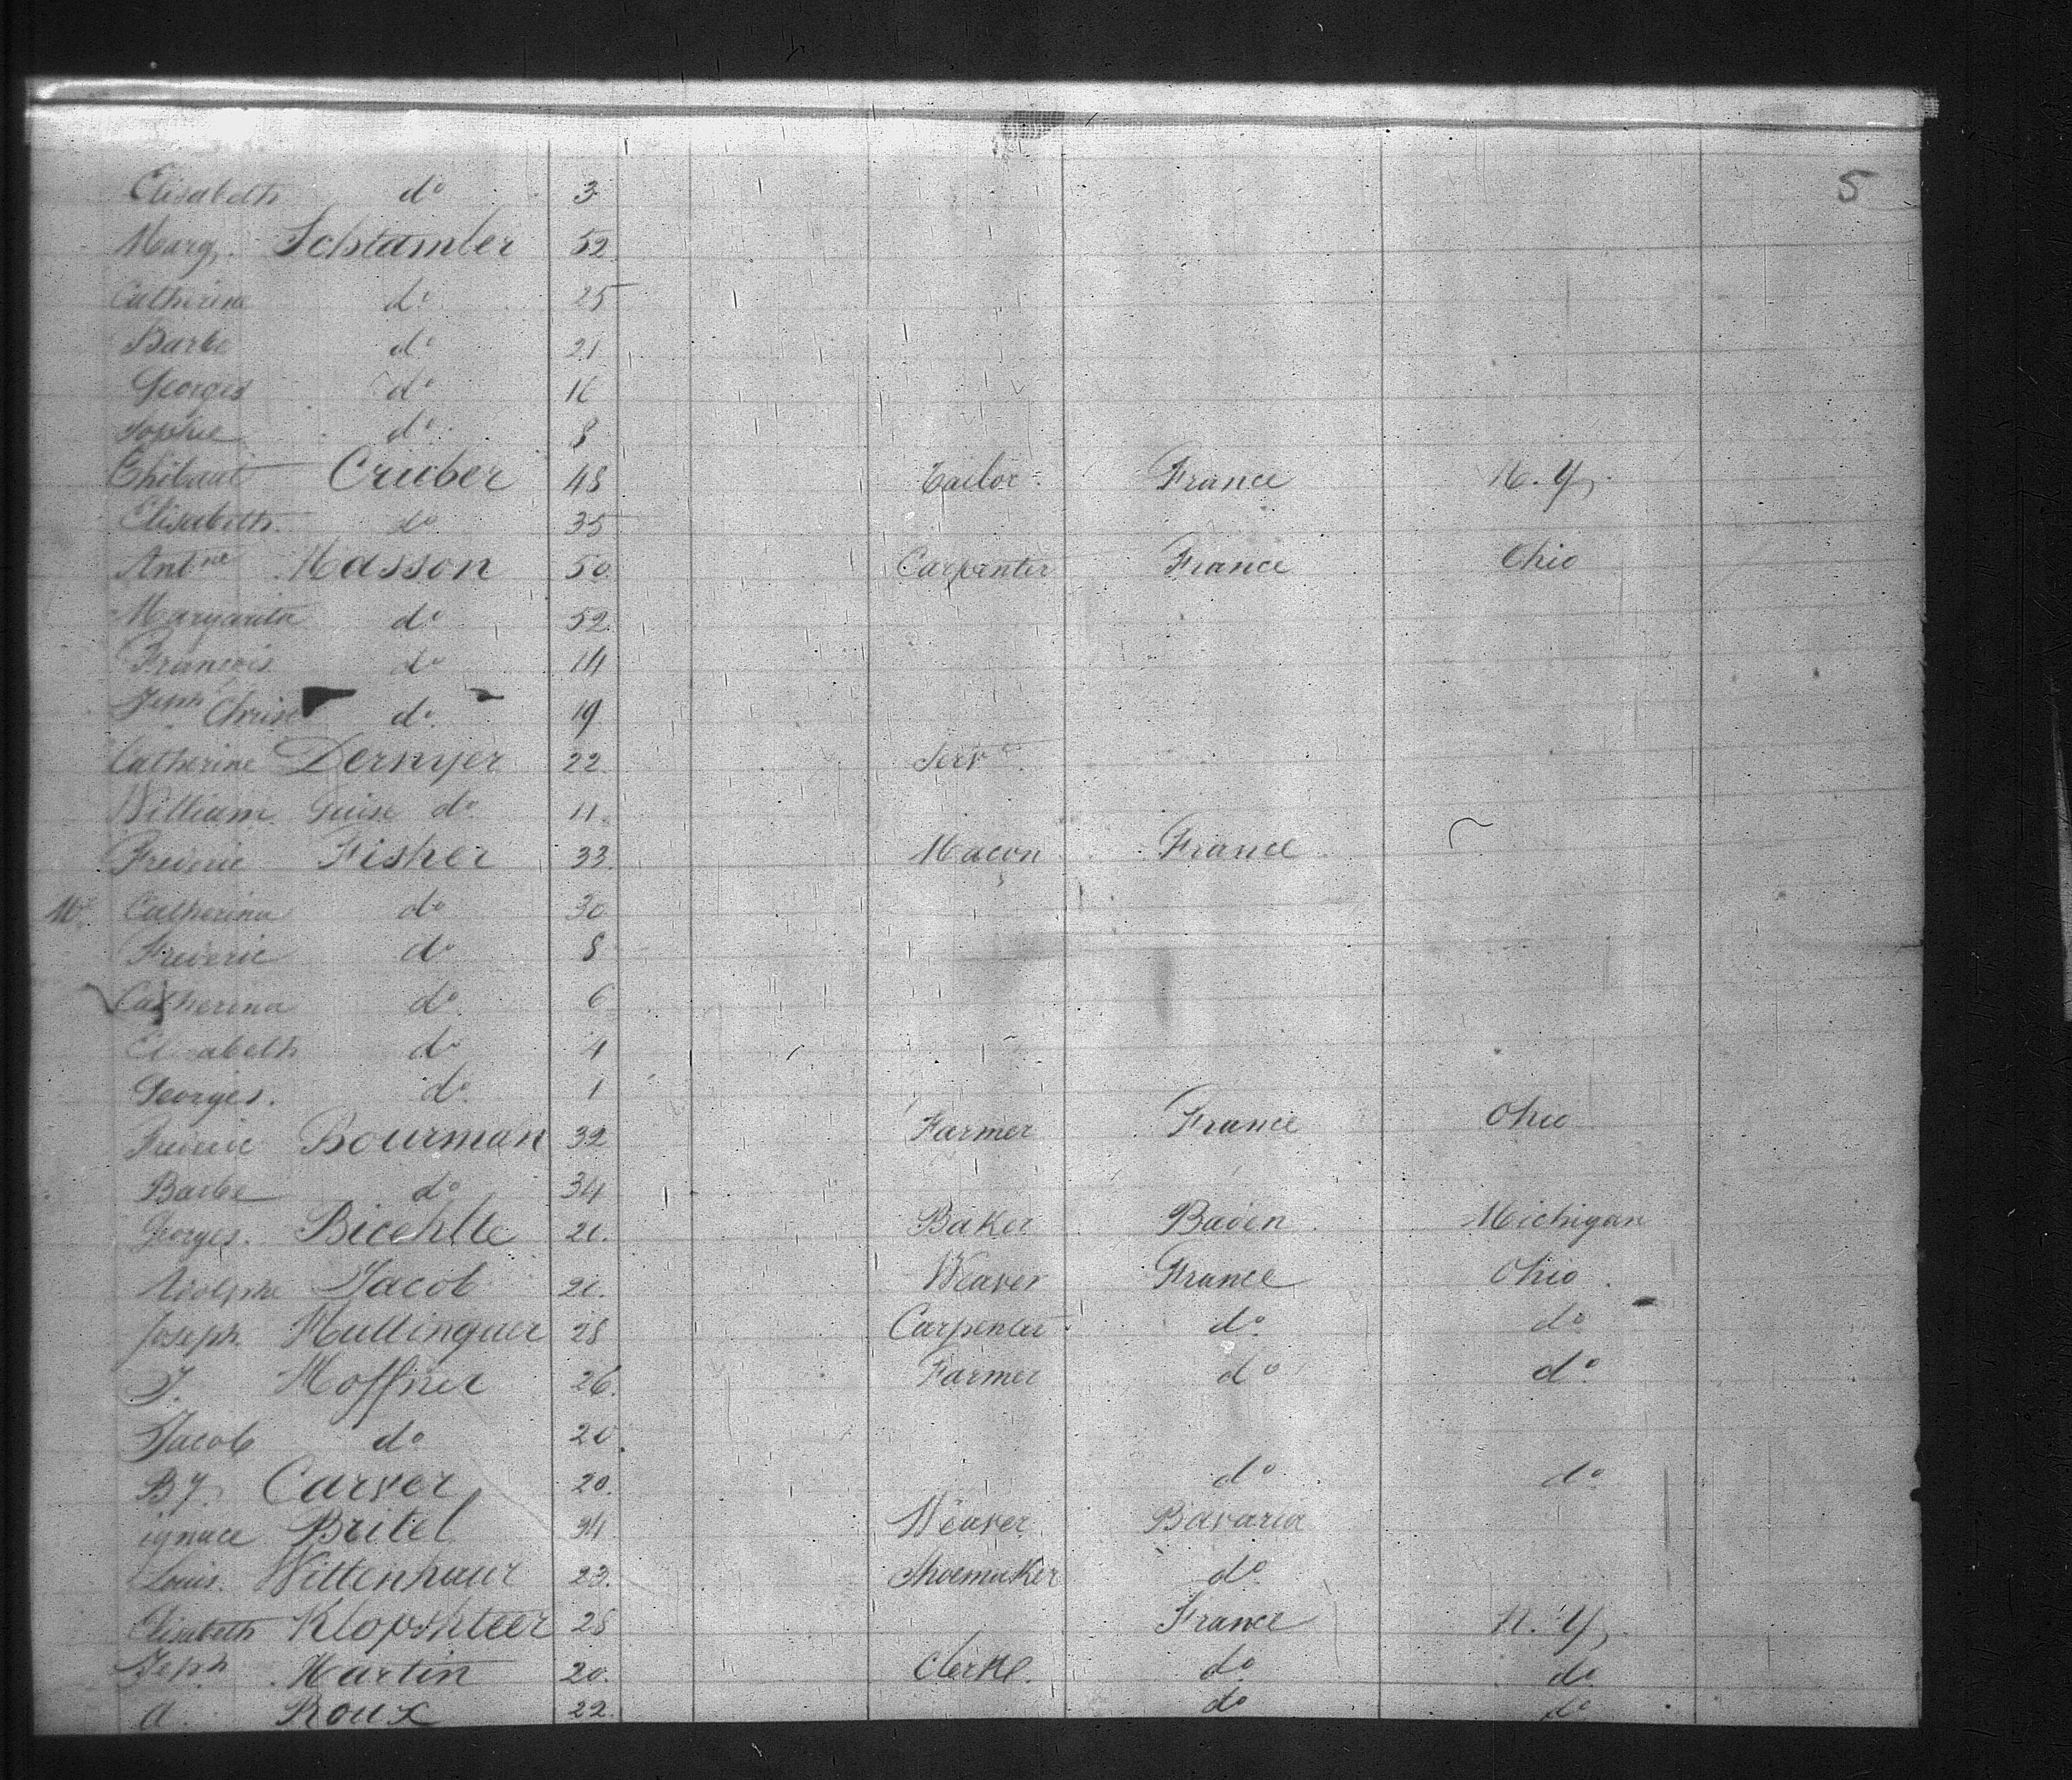 5
Elisabeth do 3
Marg. Schtamler 52
Catherine do 25
Barbe do 21
Georges do 16
Sophie do 8
Thibaut Cruber 48 Tailor France N. Y.
Elisabeth do 35
Antne Masson 50 Carpenter France Ohio
Margarita do 52
François do 14
Jeph Christ do 19
Catherine Dernyer 22 Servt
William do 11
Frederic Fisher 33 Macon France
Catherina do 30
Frederic do 8
Catherina do 6
Elisabeth do 4
Georges. do 1
Frederic Bourman 32 Farmer France Ohio
Barbe do 34
Georges. Bicehlte 21. Baker Baden Michigan
Adolphe Jacob 21. Weaver France Ohio
Joseph Hullinguer 28 Carpenter do do
J. Hoffner 26. Farmer do do
Jacob do 20
Carver 20. do do
ignace Britel 34 Weaver Bavaria
Louis. Wittenhaur 23. Shoemaker do
Elisabeth Klopshteer 28 France N. Y.
Jeph Martin 20. Clerk do do
A. Roux 22. do do